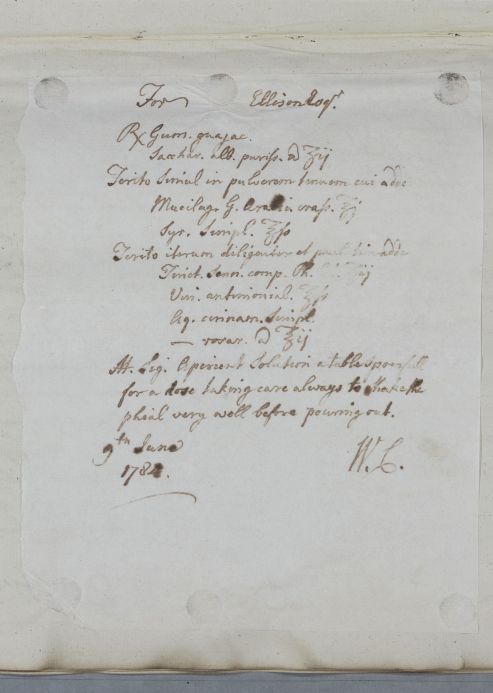 For Ellison Esqr.
℞ Gum. guajac.
Sacchar. alb. puriss. a ʒij
Terito simul in pulverem tenuem cui adde
Mucilag. G. Arabic. crass. ℥j
Syr. Simpl. ℥ſs
Terito iterum diligenter et adde
Tinct. Senn. comp. Ph.
Vin. antimonial. ℥ſs
Aq. cinnam. Simpl.
— rosar. a ℥ij
Solution a tablespoonfull
for a dose taking care always to shake the
phial very well before pouring out.
9th June
178 W. C.